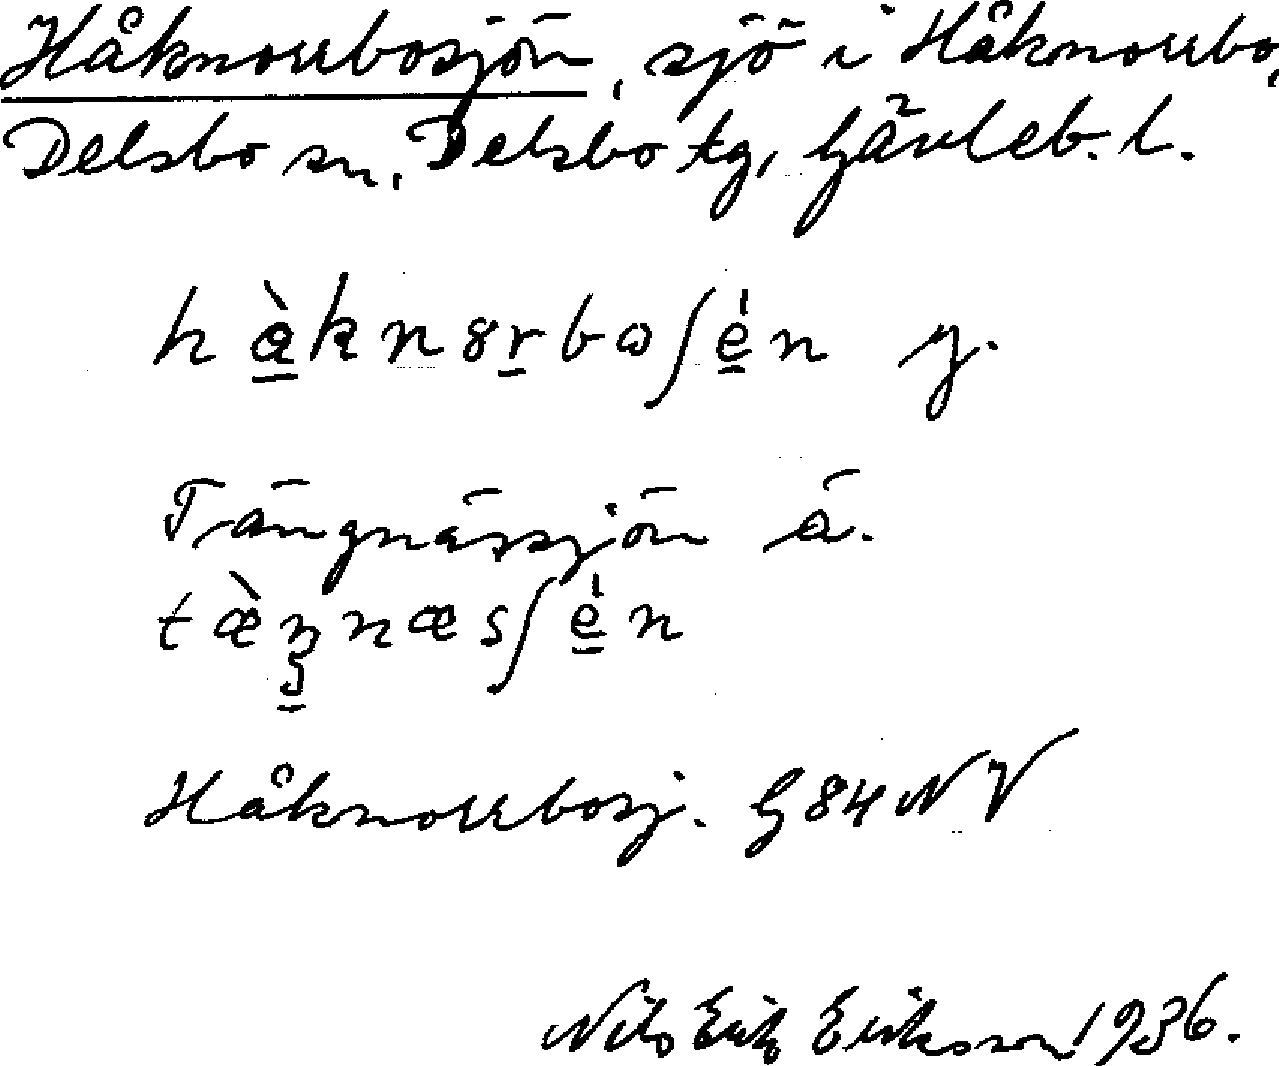 Håknorrbosjön, sjö i Håknorrbo,
Delsbo sn, Delsbo tg, Gävleb. l.
hàknɤrboʃén y.
Trångnässjön ä.
tæ̀ŋnæsʃén
Håknorrbosj. G 84 NV
Nils Erik Eriksson 1936.